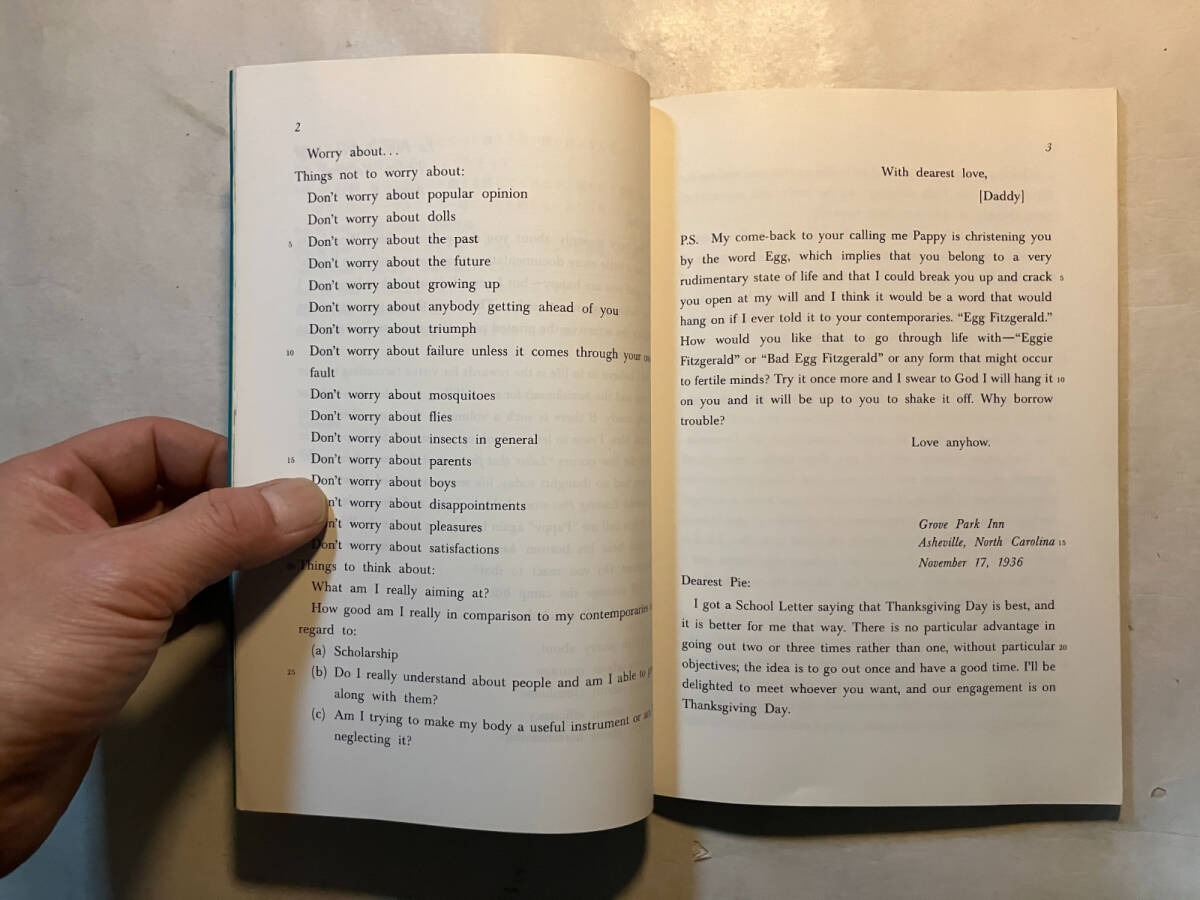 2
Worry about...
Things not to worry about:
Don't worry about popular opinion
Don't worry about dolls
5 Don't worry about the past
Don't worry about the future
Don't worry about growing up
Don't worry about anybody getting ahead of you
Don't worry about triumph
10 Don't worry about failure unless it comes through your
fault
Don't worry about mosquitoes
Don't worry about flies
Don't worry about insects in general
15 Don't worry about parents
Don't worry about boys
worry about disappointments
worry about pleasures
Don't worry about satisfactions
Things to think about:
What am I really aiming at?
How good am I really in comparison to my contemporaries
regard to:
(a) Scholarship
25 (b) Do I really understand about people and am I able to
along with them?
(c) Am I trying to make my body a useful instrument or
neglecting it?
3
With dearest love,
[Daddy]
P.S. My come-back to your calling me Pappy is christening you
by the word Egg, which implies that you belong to a very
rudimentary state of life and that I could break you up and crack 5
you open at my will and I think it would be a word that would
hang on if I ever told it to your contemporaries. “Egg Fitzgerald.”
How would you like that to go through life with—“Eggie
Fitzgerald” or “Bad Egg Fitzgerald” or any form that might occur
to fertile minds? Try it once more and I swear to God I will hang it 10
on you and it will be up to you to shake it off. Why borrow
trouble?
Love anyhow.
Grove Park Inn
Asheville, North Carolina 15
November 17, 1936
Dearest Pie:
I got a School Letter saying that Thanksgiving Day is best, and
it is better for me that way. There is no particular advantage in
going out two or three times rather than one, without particular 20
objectives; the idea is to go out once and have a good time. I'll be
delighted to meet whoever you want, and our engagement is on
Thanksgiving Day.